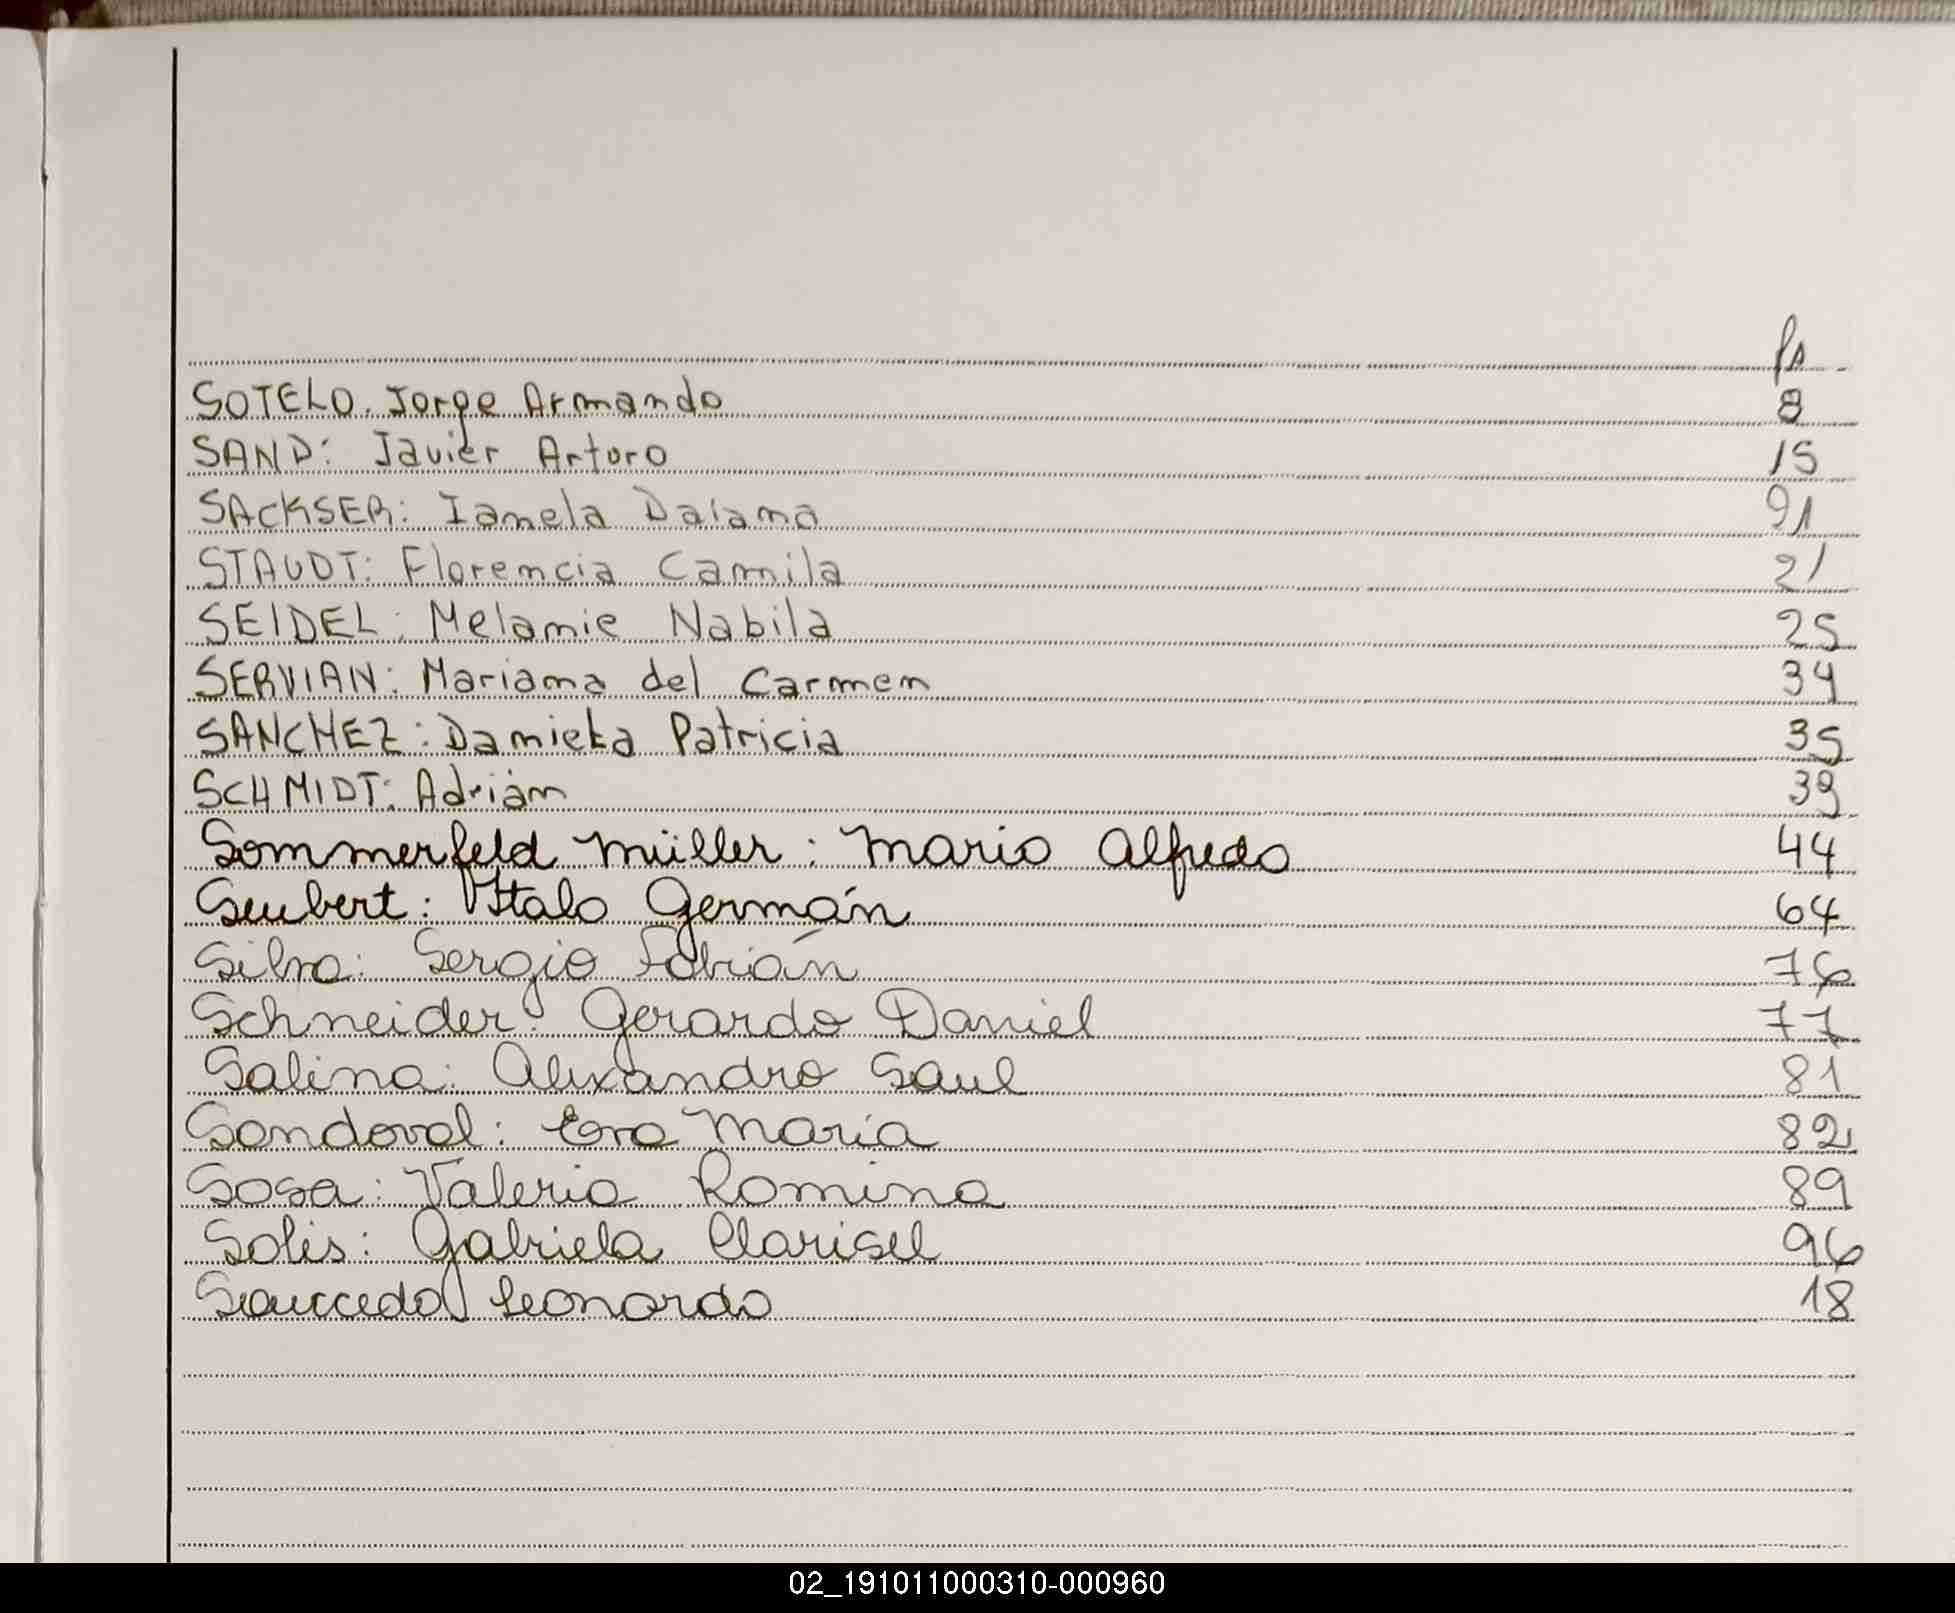 fs
SOTELO. Jorge Armando 8
SAND: Javier Arturo 15
SACKSER: Iamela Daiana 91
STAUDT: Florencia Camila 21
SEIDEL: Melanie Nabila 25
SERVIAN: Mariana del Carmen 34
SANCHEZ: Daniela Patricia 35
SCHMIDT: Adrián 39
Sommerfeld Müller: Mario Alfredo 44
Seubert: Italo Germán 64
Silva: Sergio Fabián 76
Schneider: Gerardo Daniel 77
Salina: Alexandro Saul 81
Sandoval: Eva María 82
Sosa: Valeria Romina 89
Solis: Gabriela Clarisel 96
Sauccedo Leonardo 18
02_191011000310-000960